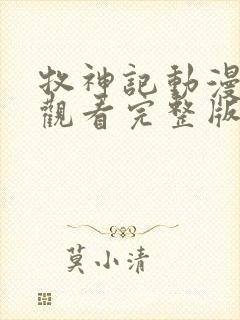 牧神記動漫
觀看完整版
莫小清